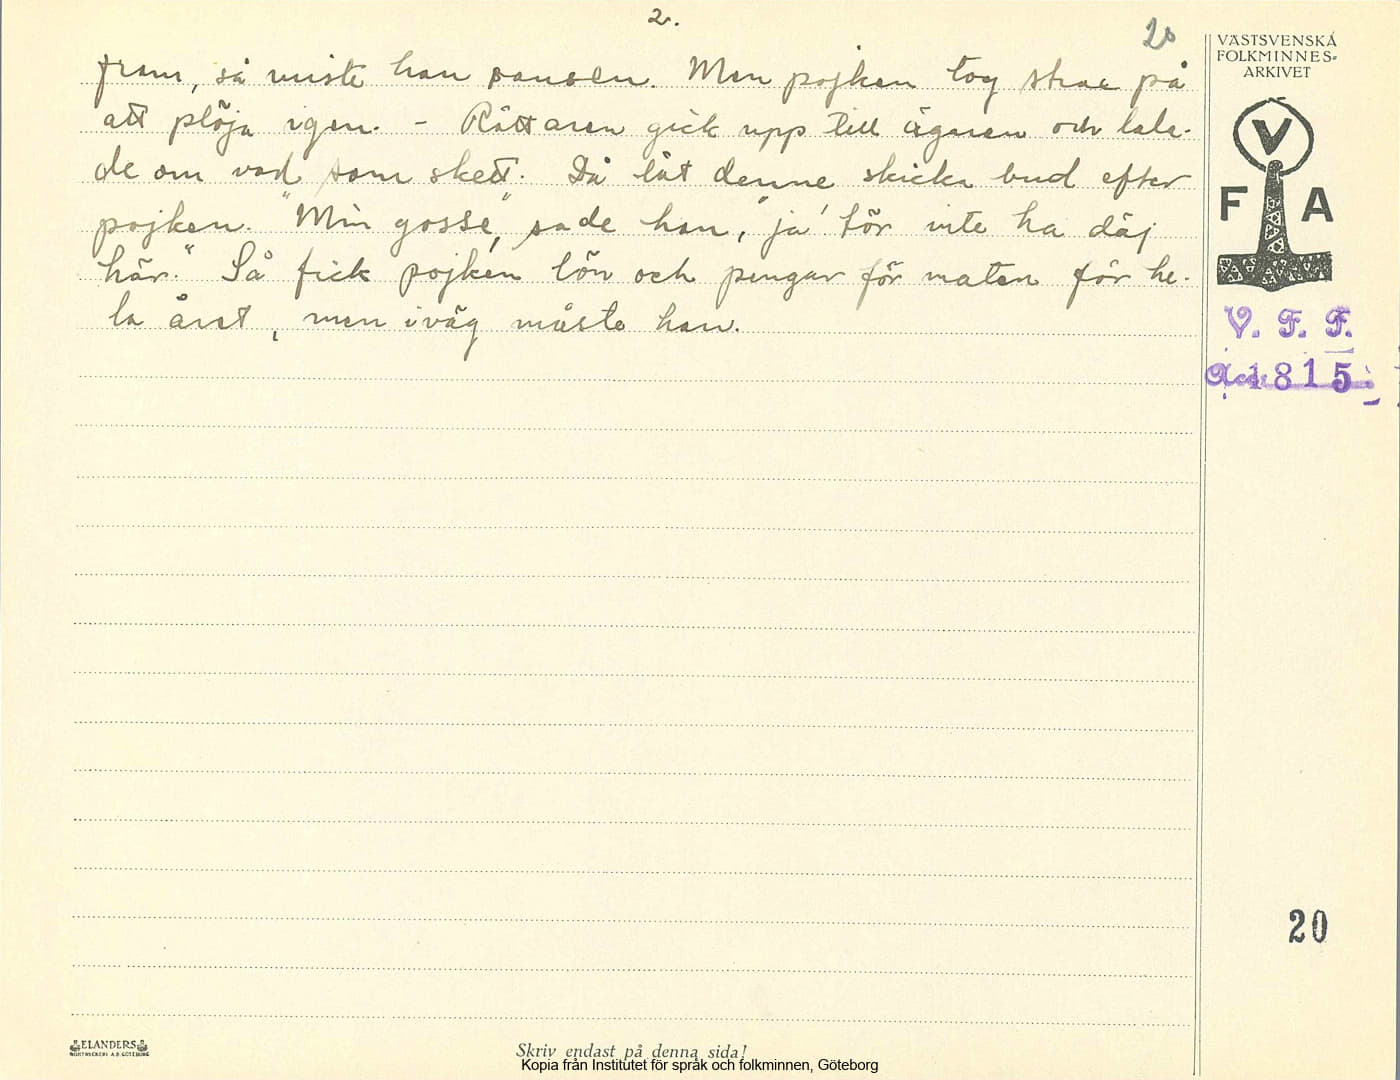 2.
20
fram, så miste han sansen. Men pojken tog strax på
att plöja igen. - Rättaren gick upp till ägaren och tala-
de om vad som skett. Då lät denne skicka bud efter
pojken. "Min gosse", sade han, "ja' tör inte ha däj
här." Så fick pojken lön och pengar för maten för he-
la året, men iväg måste han.
VÄSTSVENSKA
FOLKMINNES-
ARKIVET
V
F A
V. F. F.
Acc. 1815
20
ELANDERS
BOKTRYCKERI A.B. GÖTEBORG
Skriv endast på denna sida!
Kopia från Institutet för språk och folkminnen, Göteborg